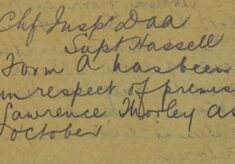 Chf Inspr Daa
Supt Hassell
Form A has been
in respect of premis
Lawrence Thorley as
October